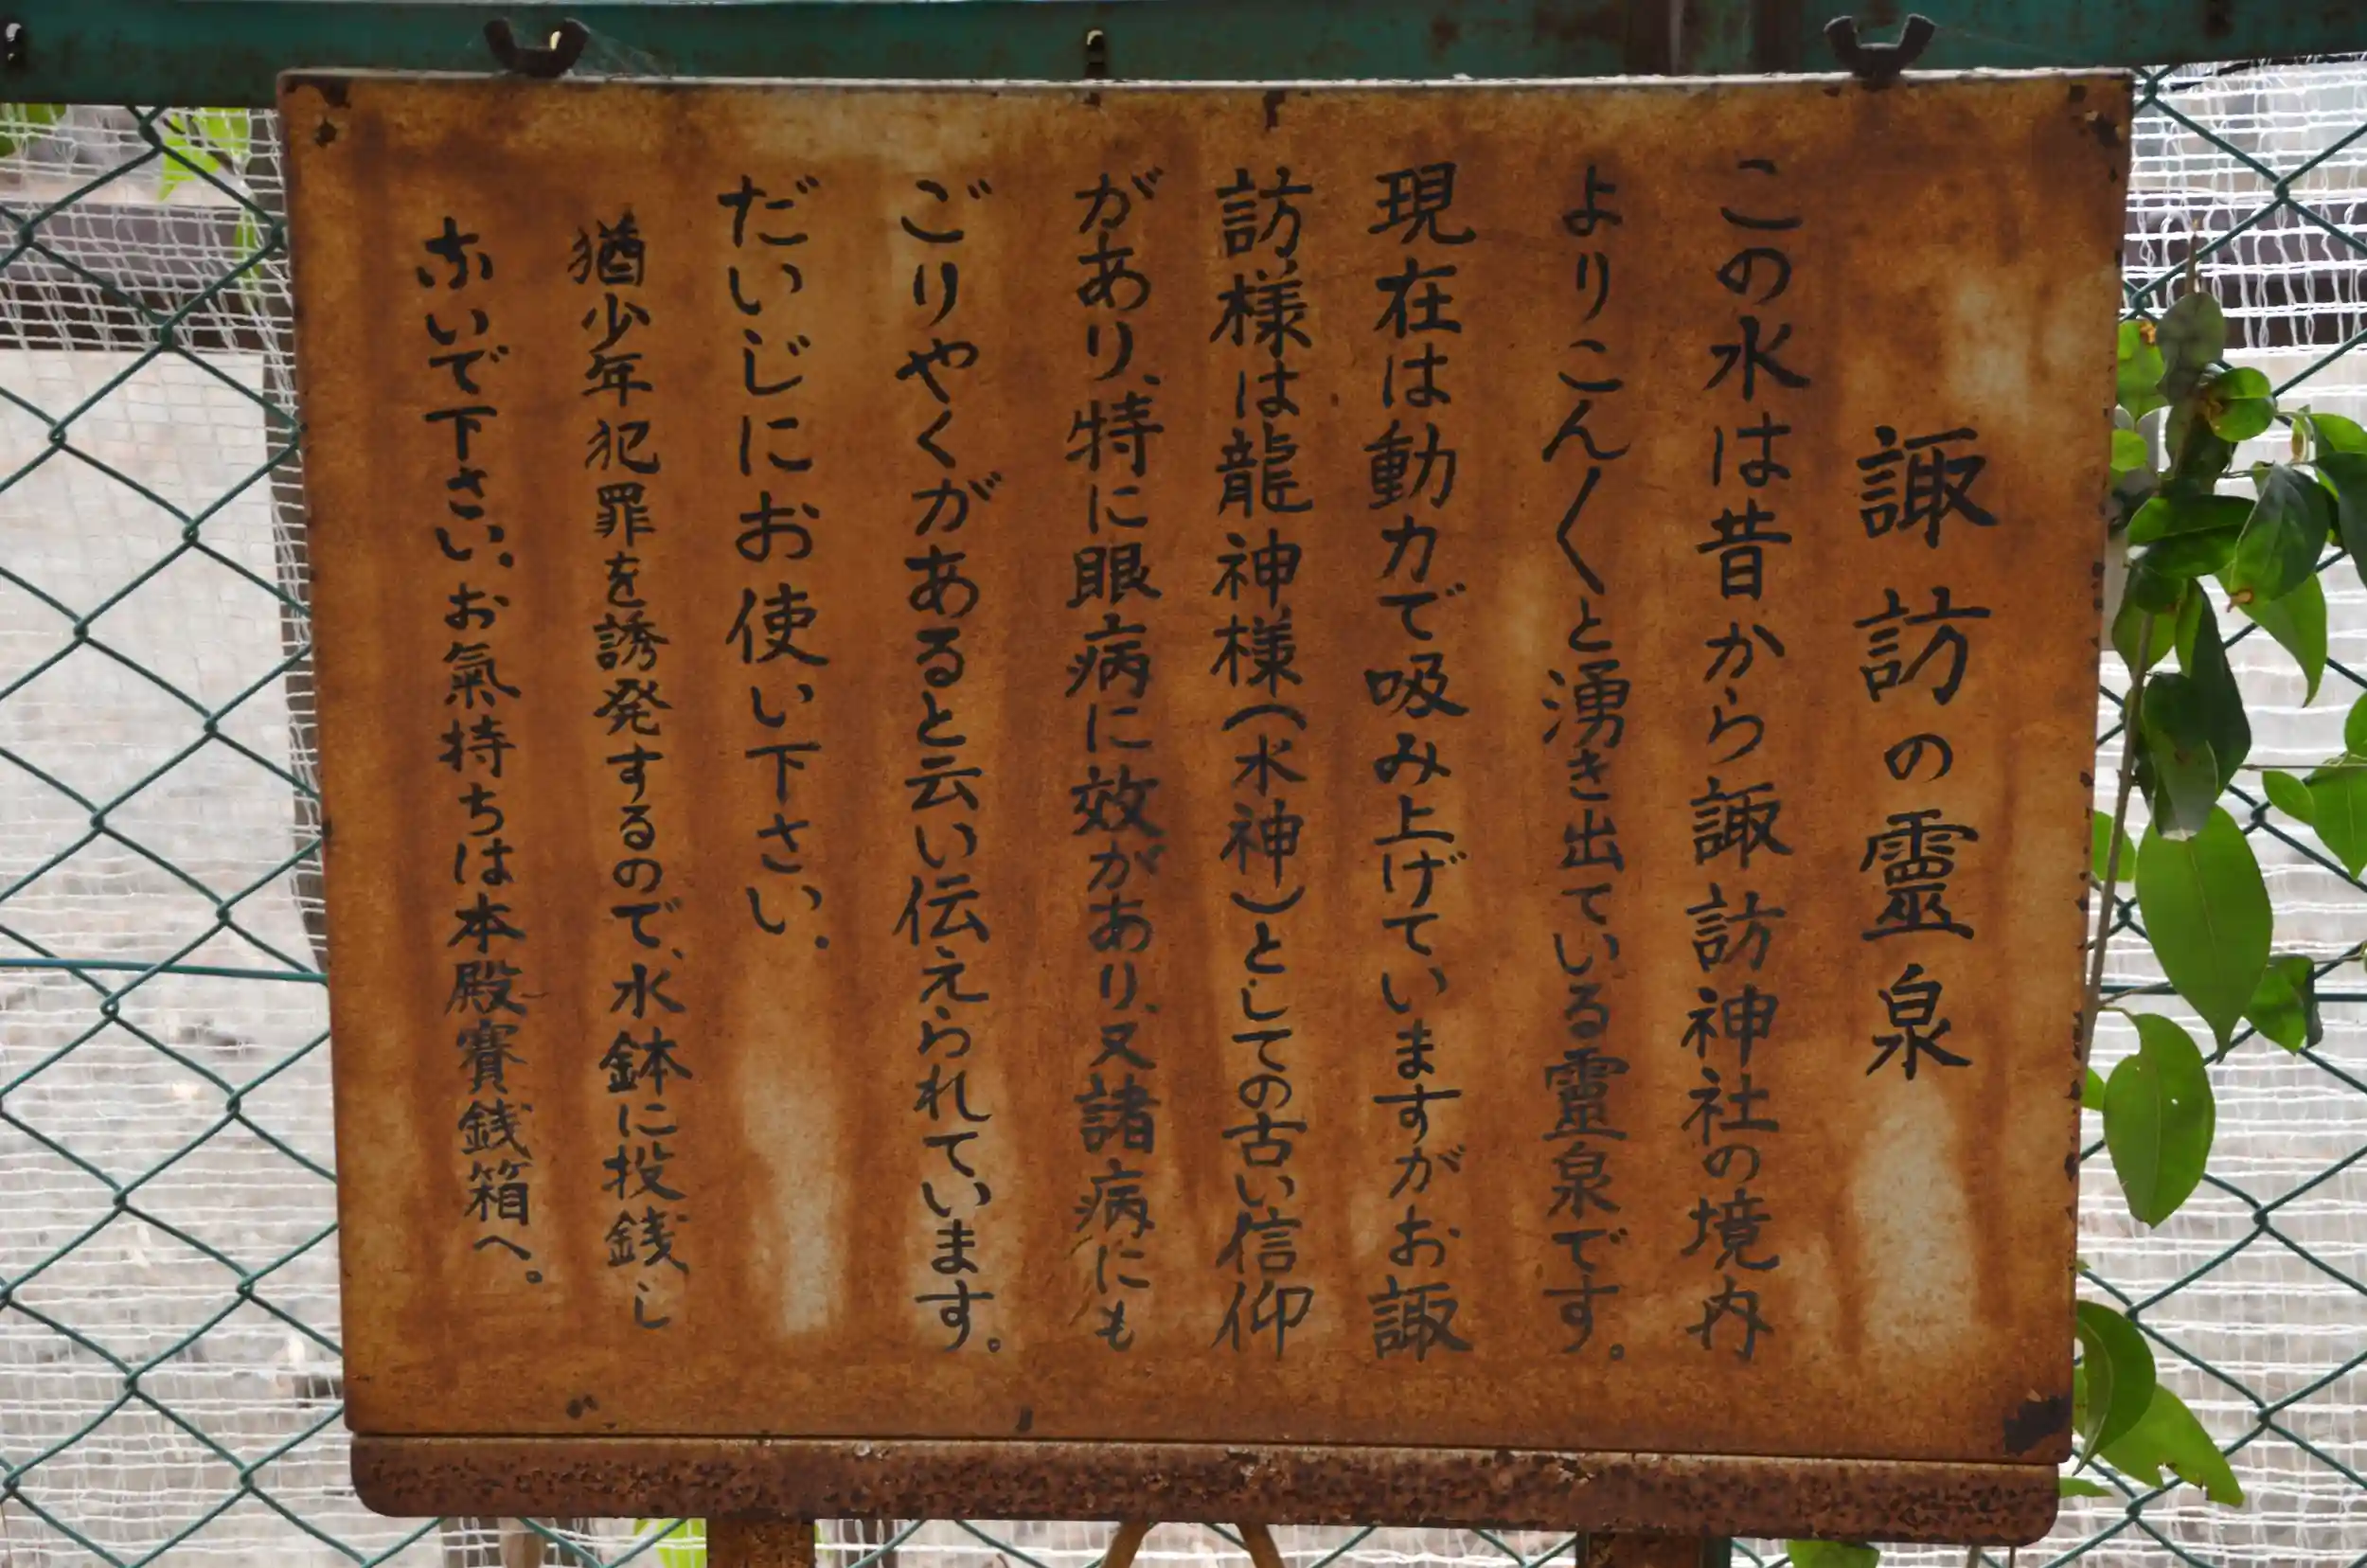 諏訪の霊泉
この水は昔から諏訪神社の境内
よりこん〱と湧き出ている霊泉です。
現在は動力で吸み上げていますがお諏
訪様は龍神様(水神)としての古い信仰
があり、特に眼病に效があり、又諸病にも
ごりやくがあると云い伝えられています。
だいじにお使い下さい。
猶少年犯罪を誘発するので、水鉢に投銭し
ないで下さい。お氣持ちは本殿賽銭箱へ。